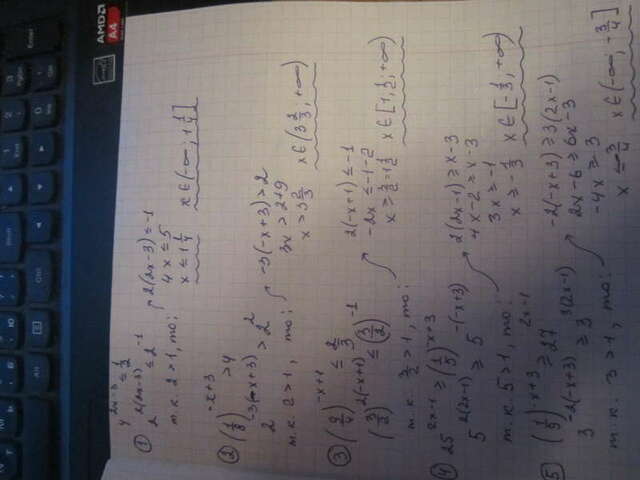 AMD
A4
1) 4^(2x-3) ≤ 1/2
2^(2(2x-3)) ≤ 2^(-1)
т.к. 2 > 1, то:
2(2x-3) ≤ -1
4x ≤ 5
x ≤ 1 1/4   x ∈ (-∞; 1 1/4]
2) (1/8)^(-x+3) > 4
2^(-3(-x+3)) > 2^2
т.к. 2 > 1, то:
-3(-x+3) > 2
3x > 2+9
x > 3 2/3   x ∈ (3 2/3; +∞)
3) (9/4)^(-x+1) ≤ 2/3
(3/2)^(2(-x+1)) ≤ (3/2)^(-1)
т.к. 3/2 > 1, то:
2(-x+1) ≤ -1
-2x ≤ -1-2
x ≥ 3/2 = 1 1/2   x ∈ [1, 1/2; +∞)
4) 25^(2x-1) ≥ (1/5)^(-x+3)
5^(2(2x-1)) ≥ 5^(-(-x+3))
т.к. 5 > 1, то:
2(2x-1) ≥ x-3
4x-2 ≥ x-3
3x ≥ -1
x ≥ -1/3   x ∈ [-1/3; +∞)
5) (1/5)^(-x+3) ≥ 27^(2x-1)
3^(-2(-x+3)) ≥ 3^(3(2x-1))
т.к. 3 > 1, то:
-2(-x+3) ≥ 3(2x-1)
2x-6 ≥ 6x-3
-4x ≥ 3
x ≤ -3/4   x ∈ (-∞; -3/4]